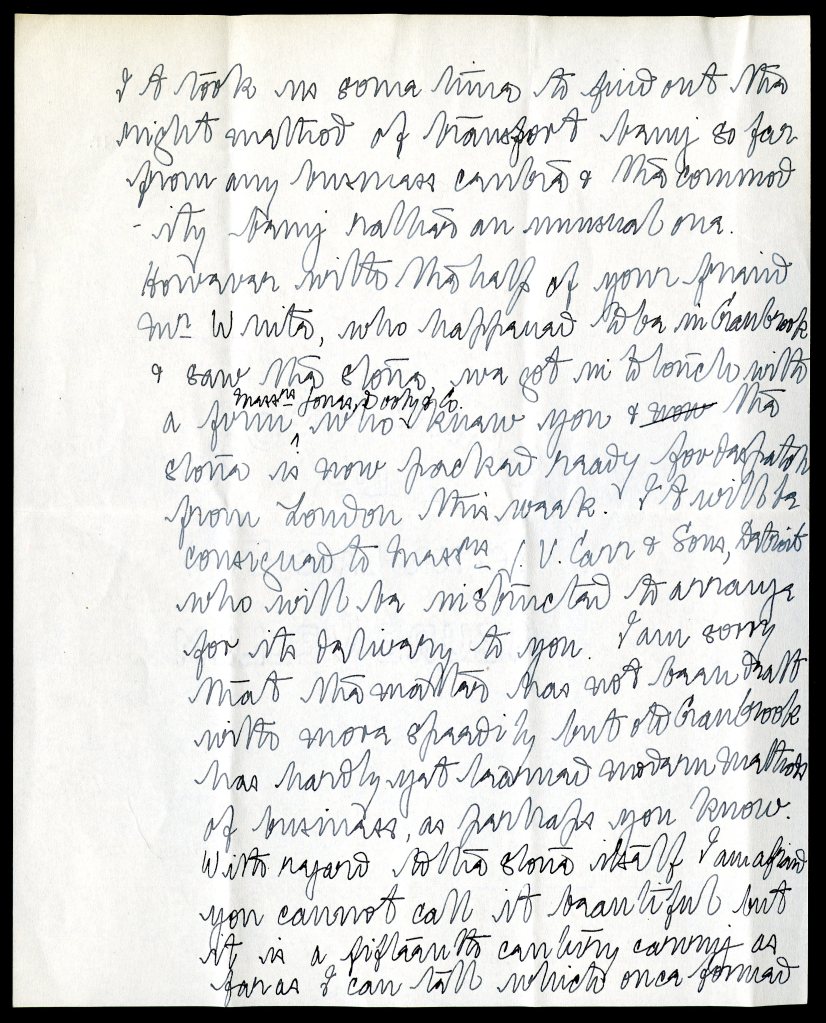 It took us some time to find out the
right method of transport being so far
from any business centre & the commod
- ity being rather an unusual one.
However with the help of your friend
Mr. White, who happened to be in Cranbrook
& saw the stone, we got in touch with
Messrs Jonas, Dooly & Co.
a firm ^ who knew you & now the
stone is now packed ready for despatch
from London this week. It will be
consigned to Messrs J. V. Carr & Sons, Detroit
who will be instructed to arrange
for its delivery to you. I am sorry
that the matter has not been dealt
with more speedily but old Cranbrook
has hardly yet learned modern methods
of business, as perhaps you know.
With regard to the stone itself I am afraid
you cannot call it beautiful but
it is a fifteenth century carving as
far as I can tell which once formed